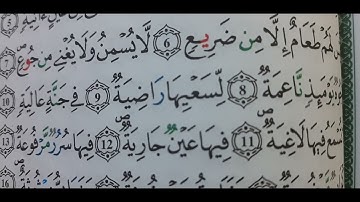 لَهُمْ طَعَامٌ إِلَّا مِن ضَرِيعٍ 6 لَّا يُسْمِنُ وَلَا يُغْنِي مِن جُوعٍ 7
يَوْمَئِذٍ نَّاعِمَةٌ 8 لِّسَعْيِهَا رَاضِيَةٌ 9 فِي جَنَّةٍ عَالِيَةٍ 10
تَسْمَعُ فِيهَا لَاغِيَةً 11 فِيهَا عَيْنٌ جَارِيَةٌ 12 فِيهَا سُرُرٌ مَّرْفُوعَةٌ 13
16